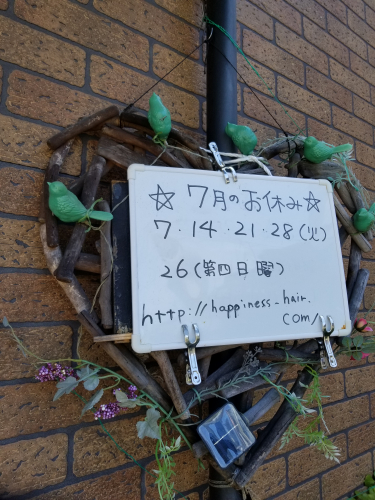 ☆7月のお休み☆
7・14・21・28(火)
26(第四日曜)
http://happiness-hair.
com/